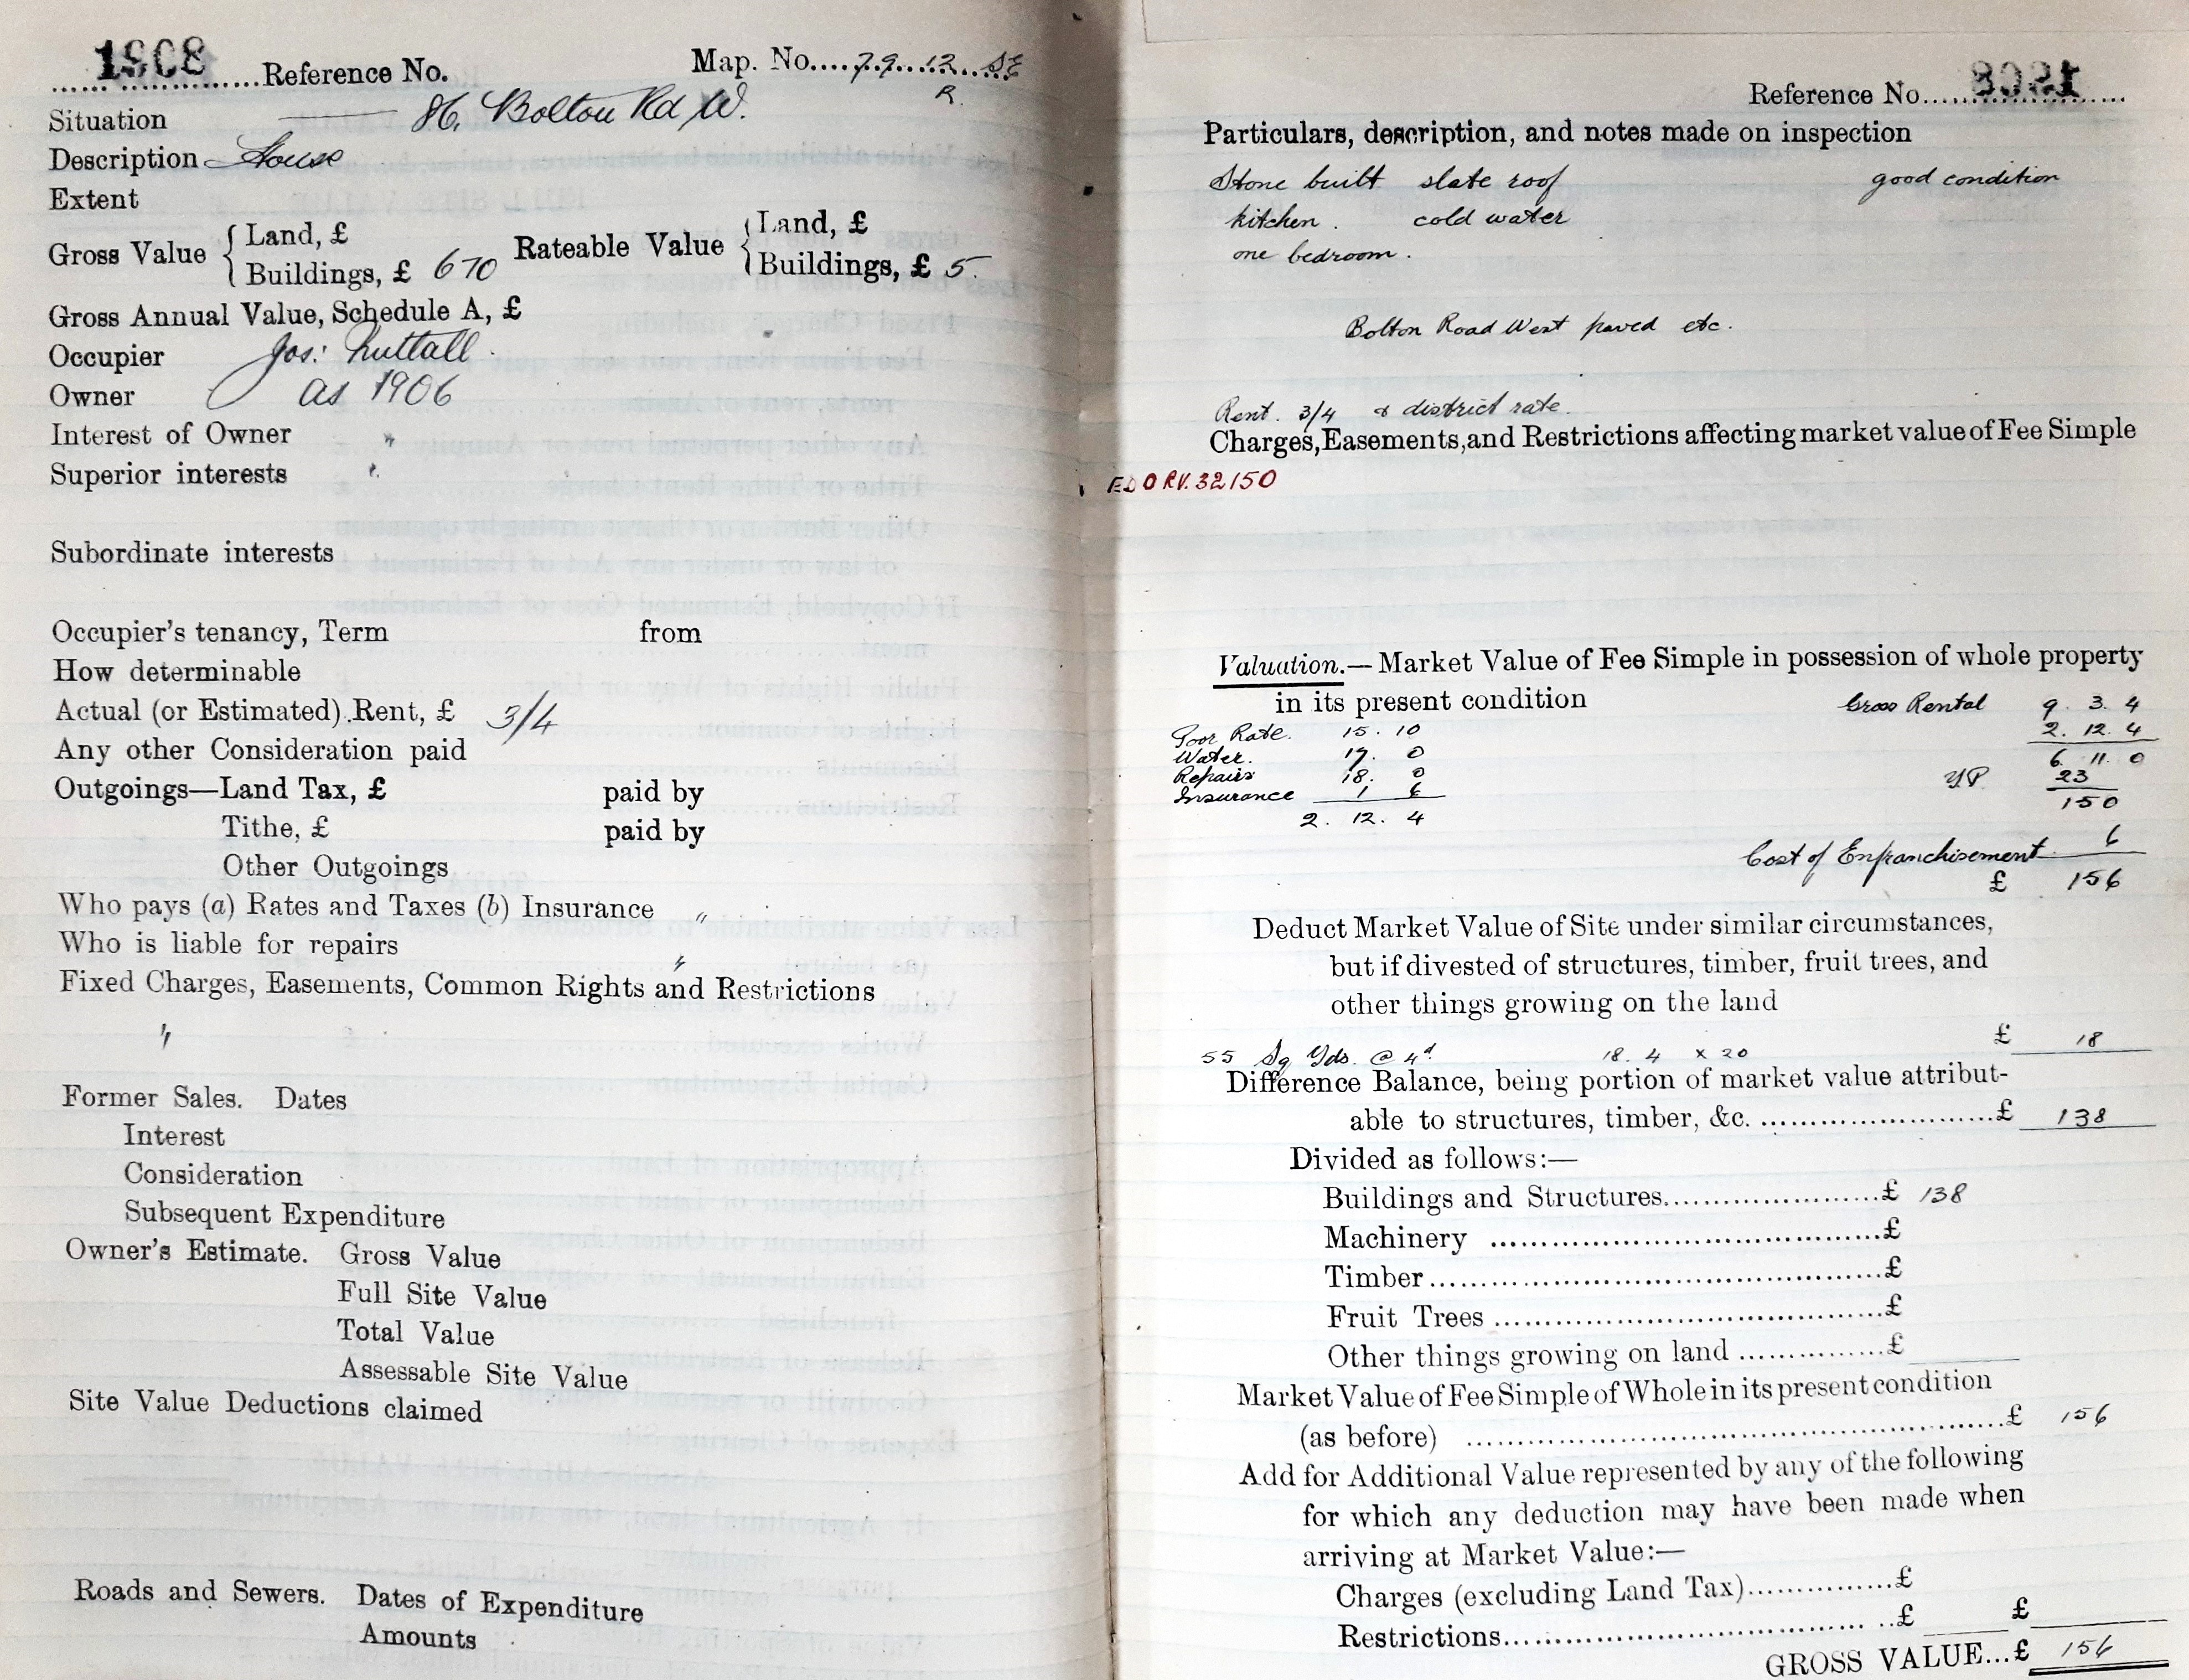 1908 Reference No. Map. No. 79. 12 SE
R.
Situation 86, Bolton Rd W.
Description House
Extent
Gross Value { Land, £
Buildings, £ 6 10
Rateable Value { Land, £
Buildings, £ 5.
Gross Annual Value, Schedule A, £
Occupier Jos: Nuttall.
Owner as 1906
Interest of Owner "
Superior interests "
Subordinate interests
Occupier's tenancy, Term from
How determinable
Actual (or Estimated) Rent, £ 3/4
Any other Consideration paid
Outgoings—Land Tax, £ paid by
Tithe, £ paid by
Other Outgoings
Who pays (a) Rates and Taxes (b) Insurance "
Who is liable for repairs "
Fixed Charges, Easements, Common Rights and Restrictions
"
Former Sales. Dates
Interest
Consideration
Subsequent Expenditure
Owner's Estimate. Gross Value
Full Site Value
Total Value
Assessable Site Value
Site Value Deductions claimed
Roads and Sewers. Dates of Expenditure
Amounts
Reference No. 1908
Particulars, description, and notes made on inspection
Stone built slate roof good condition
kitchen. cold water
one bedroom.
Bolton Road West paved etc.
Rent. 3/4 & district rate.
Charges, Easements, and Restrictions affecting market value of Fee Simple
RV. 32150
Valuation.— Market Value of Fee Simple in possession of whole property
in its present condition
Gross Rental 9. 3. 4
2. 12. 4
6. 11. 0
YP 23
150
Poor Rate. 15. 10
Water. 17. 0
Repairs 18. 0
Insurance 1 6
2. 12. 4
Cost of Enfranchisement 6
£ 156
Deduct Market Value of Site under similar circumstances,
but if divested of structures, timber, fruit trees, and
other things growing on the land
£ 18
55 Sq Yds. @ 4d. 18. 4 x 20
Difference Balance, being portion of market value attribut-
able to structures, timber, &c. £ 138
Divided as follows:—
Buildings and Structures £ 138
Machinery £
Timber £
Fruit Trees £
Other things growing on land £
Market Value of Fee Simple of Whole in its present condition
(as before) £ 156
Add for Additional Value represented by any of the following
for which any deduction may have been made when
arriving at Market Value:—
Charges (excluding Land Tax) £
Restrictions £ £
GROSS VALUE...£ 156